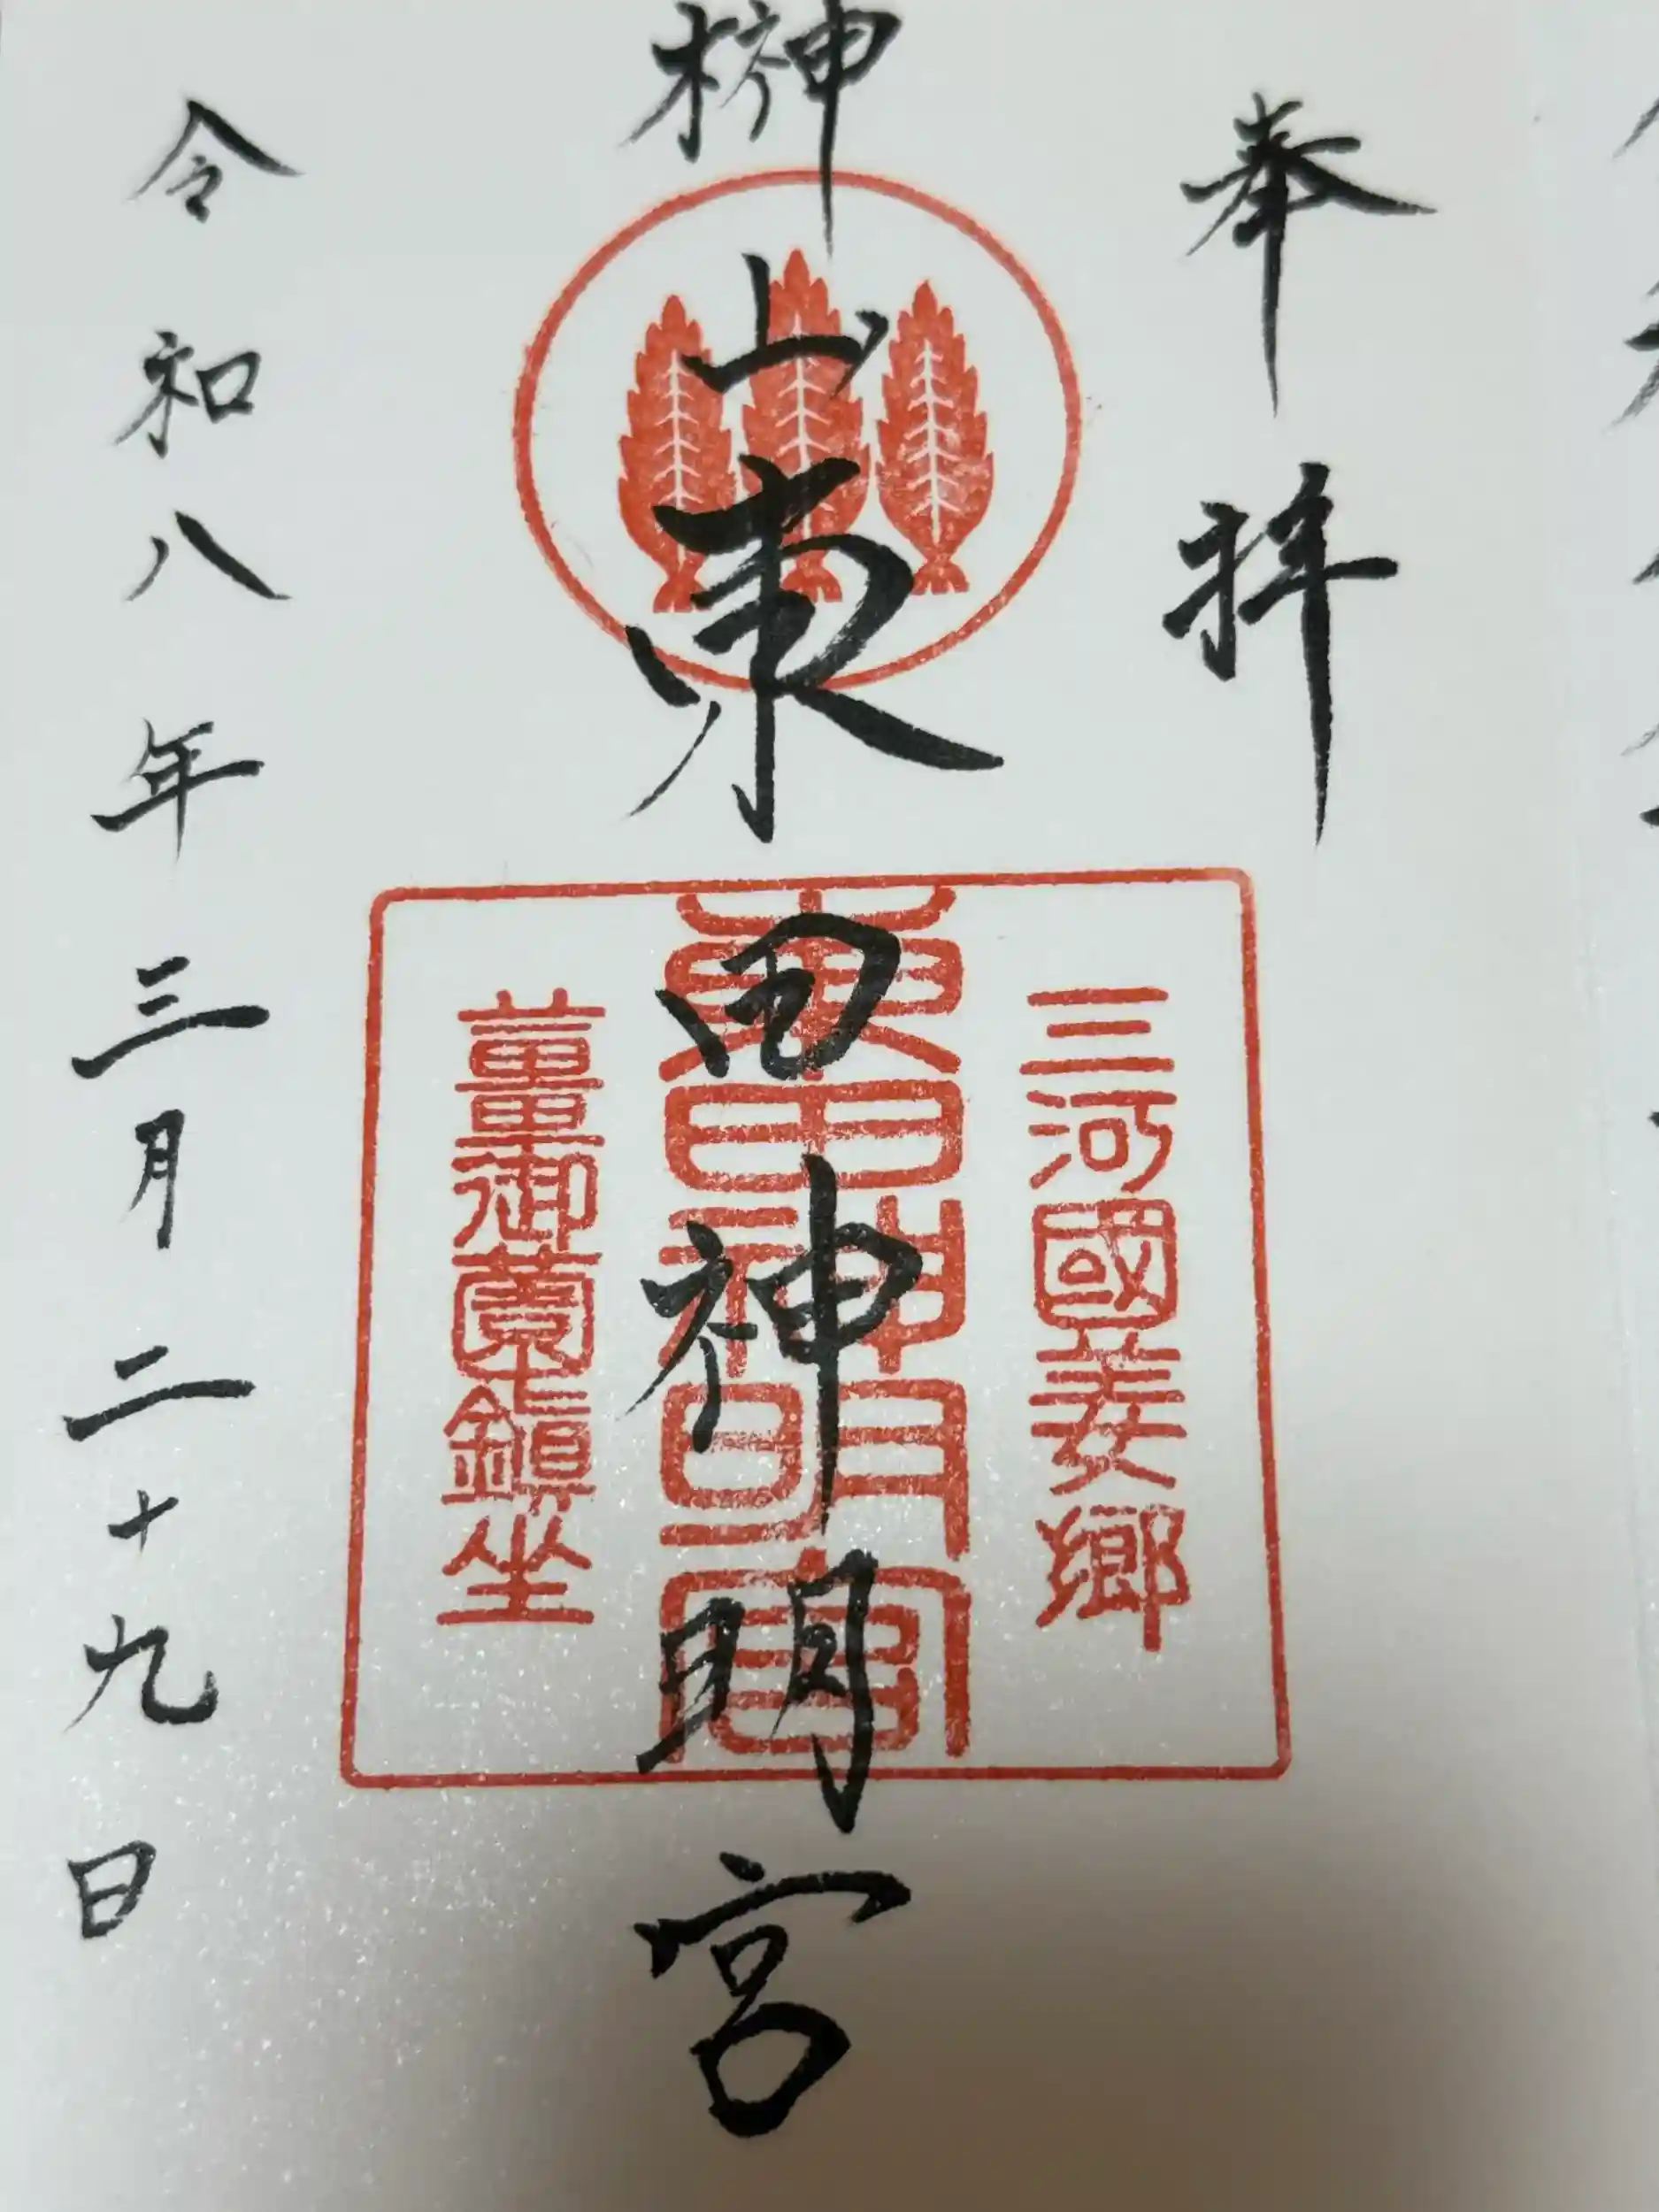 奉拝
榊山東田神明宮
三河國姜鄉
東田神明宮
薑御薗鎮坐
令和八年三月二十九日